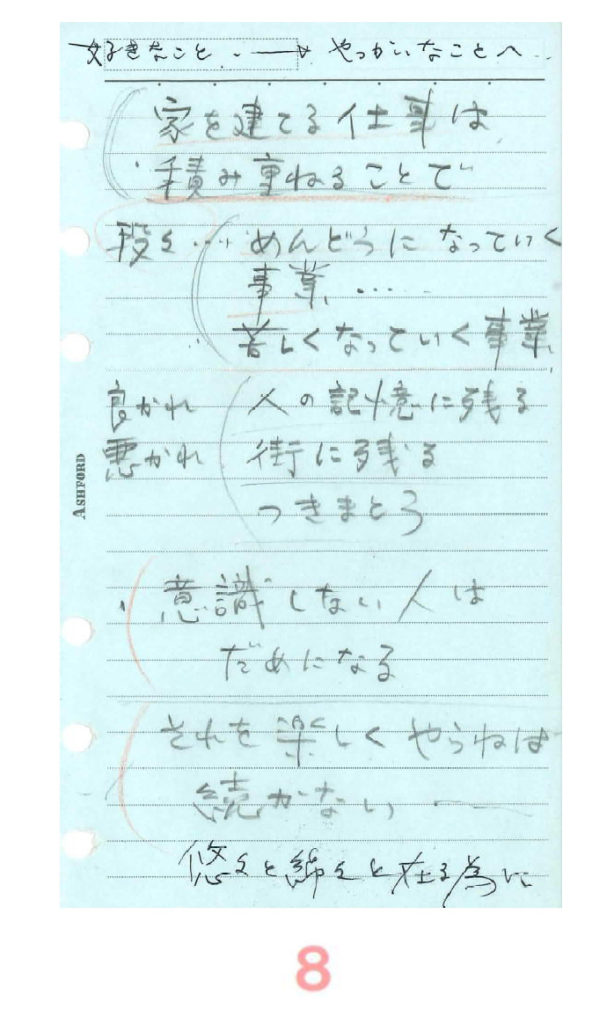 好きなこと ..→ やっかいなことへ...
家を建てる仕事は
積み重ねることで
段々…. めんどうになっていく
事業.....
苦しくなっていく事業
良かれ 人の記憶に残る
悪かれ 街に残る
つきまとう
意識しない人は
だめになる
それを楽しくやらねば
続かない
悠々と綿々と在る為に
ASHFORD
8